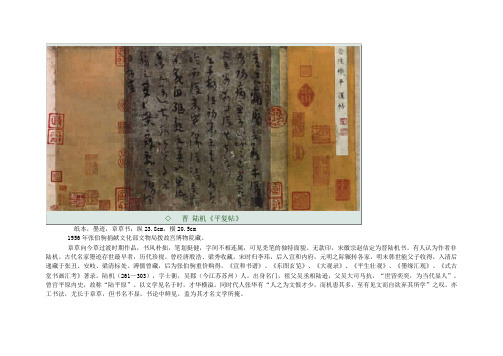 晉陸機平復帖
◇ 晋 陆机《平复帖》
纸本，墨迹，章草书；纵23.8cm，横20.5cm
1956年张伯驹捐献文化部文物局拨故宫博物院藏。
章草向今草过渡时期作品，书风朴拙，笔划挺健，字间不相连属，可见秃笔的独特面貌。无款印，宋徽宗赵佶定为晋陆机书。有人认为作者非
陆机。古代名家墨迹存世最早者，历代珍视。曾经唐殷浩、梁秀收藏，宋时归李玮，后入宣和内府，元明之际辗转各家，明末韩世能父子收得，入清后
递藏于张丑、安岐、梁清标处，溥儒曾藏，后为张伯驹重价购得。《宣和书谱》、《东图玄览》、《大观录》、《平生壮观》、《墨缘汇观》、《式古
堂书画汇考》著录。陆机（261—303），字士衡，吴郡（今江苏苏州）人。出身名门，祖父吴丞相陆逊，父吴大司马抗，“世皆奕奕，为当代显人”。
曾官平原内史，故称“陆平原”。以文学见名于时，才华横溢。同时代人张华有“人之为文恨才少，而机患其多，至有见文而自欲弃其所学”之叹。亦
工书法，尤长于章草，但书名不显。书论中鲜见，盖为其才名文学所掩。